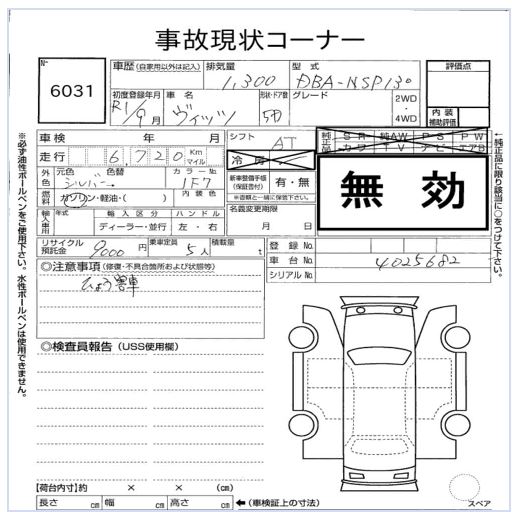 事故現状コーナー
No
6031
車歴 (自家用以外は記入) 排気量 1,300 型式 DBA-NSP130 評価点
初度登録年月 R1/9月 車名 ヴィッツ 形状・ドア数 5D グレード 2WD・4WD 内装補助評価
車検 年 月 シフト AT 純正品 SR 純AW PS PW
カワ TV ナビ エアB
走行 6,720 Km マイル 冷房
外色 元色 シルバー 色替 カラーNo 1F7 新車整備手帳(保証書付) 有・無
※書類と一緒に保管下さい。
燃料 ガソリン・軽油・( ) 内装色 名義変更期限 月 日
無効
輸入車用 年式 輸入区分 ディーラー・並行 ハンドル 左・右
リサイクル預託金 9000円 乗車定員 5人 積載量 t 登録No.
車台No. 4025682
シリアルNo.
◎注意事項(修復・不具合箇所および状態等)
ひょう害車
◎検査員報告(USS使用欄)
【荷台内寸】約 × × (cm)
長さ cm 幅 cm 高さ cm ←(車検証上の寸法)
スペア
※必ず油性ボールペンをご使用下さい。水性ボールペンは使用できません。
←純正品に限り該当に○をつけて下さい。